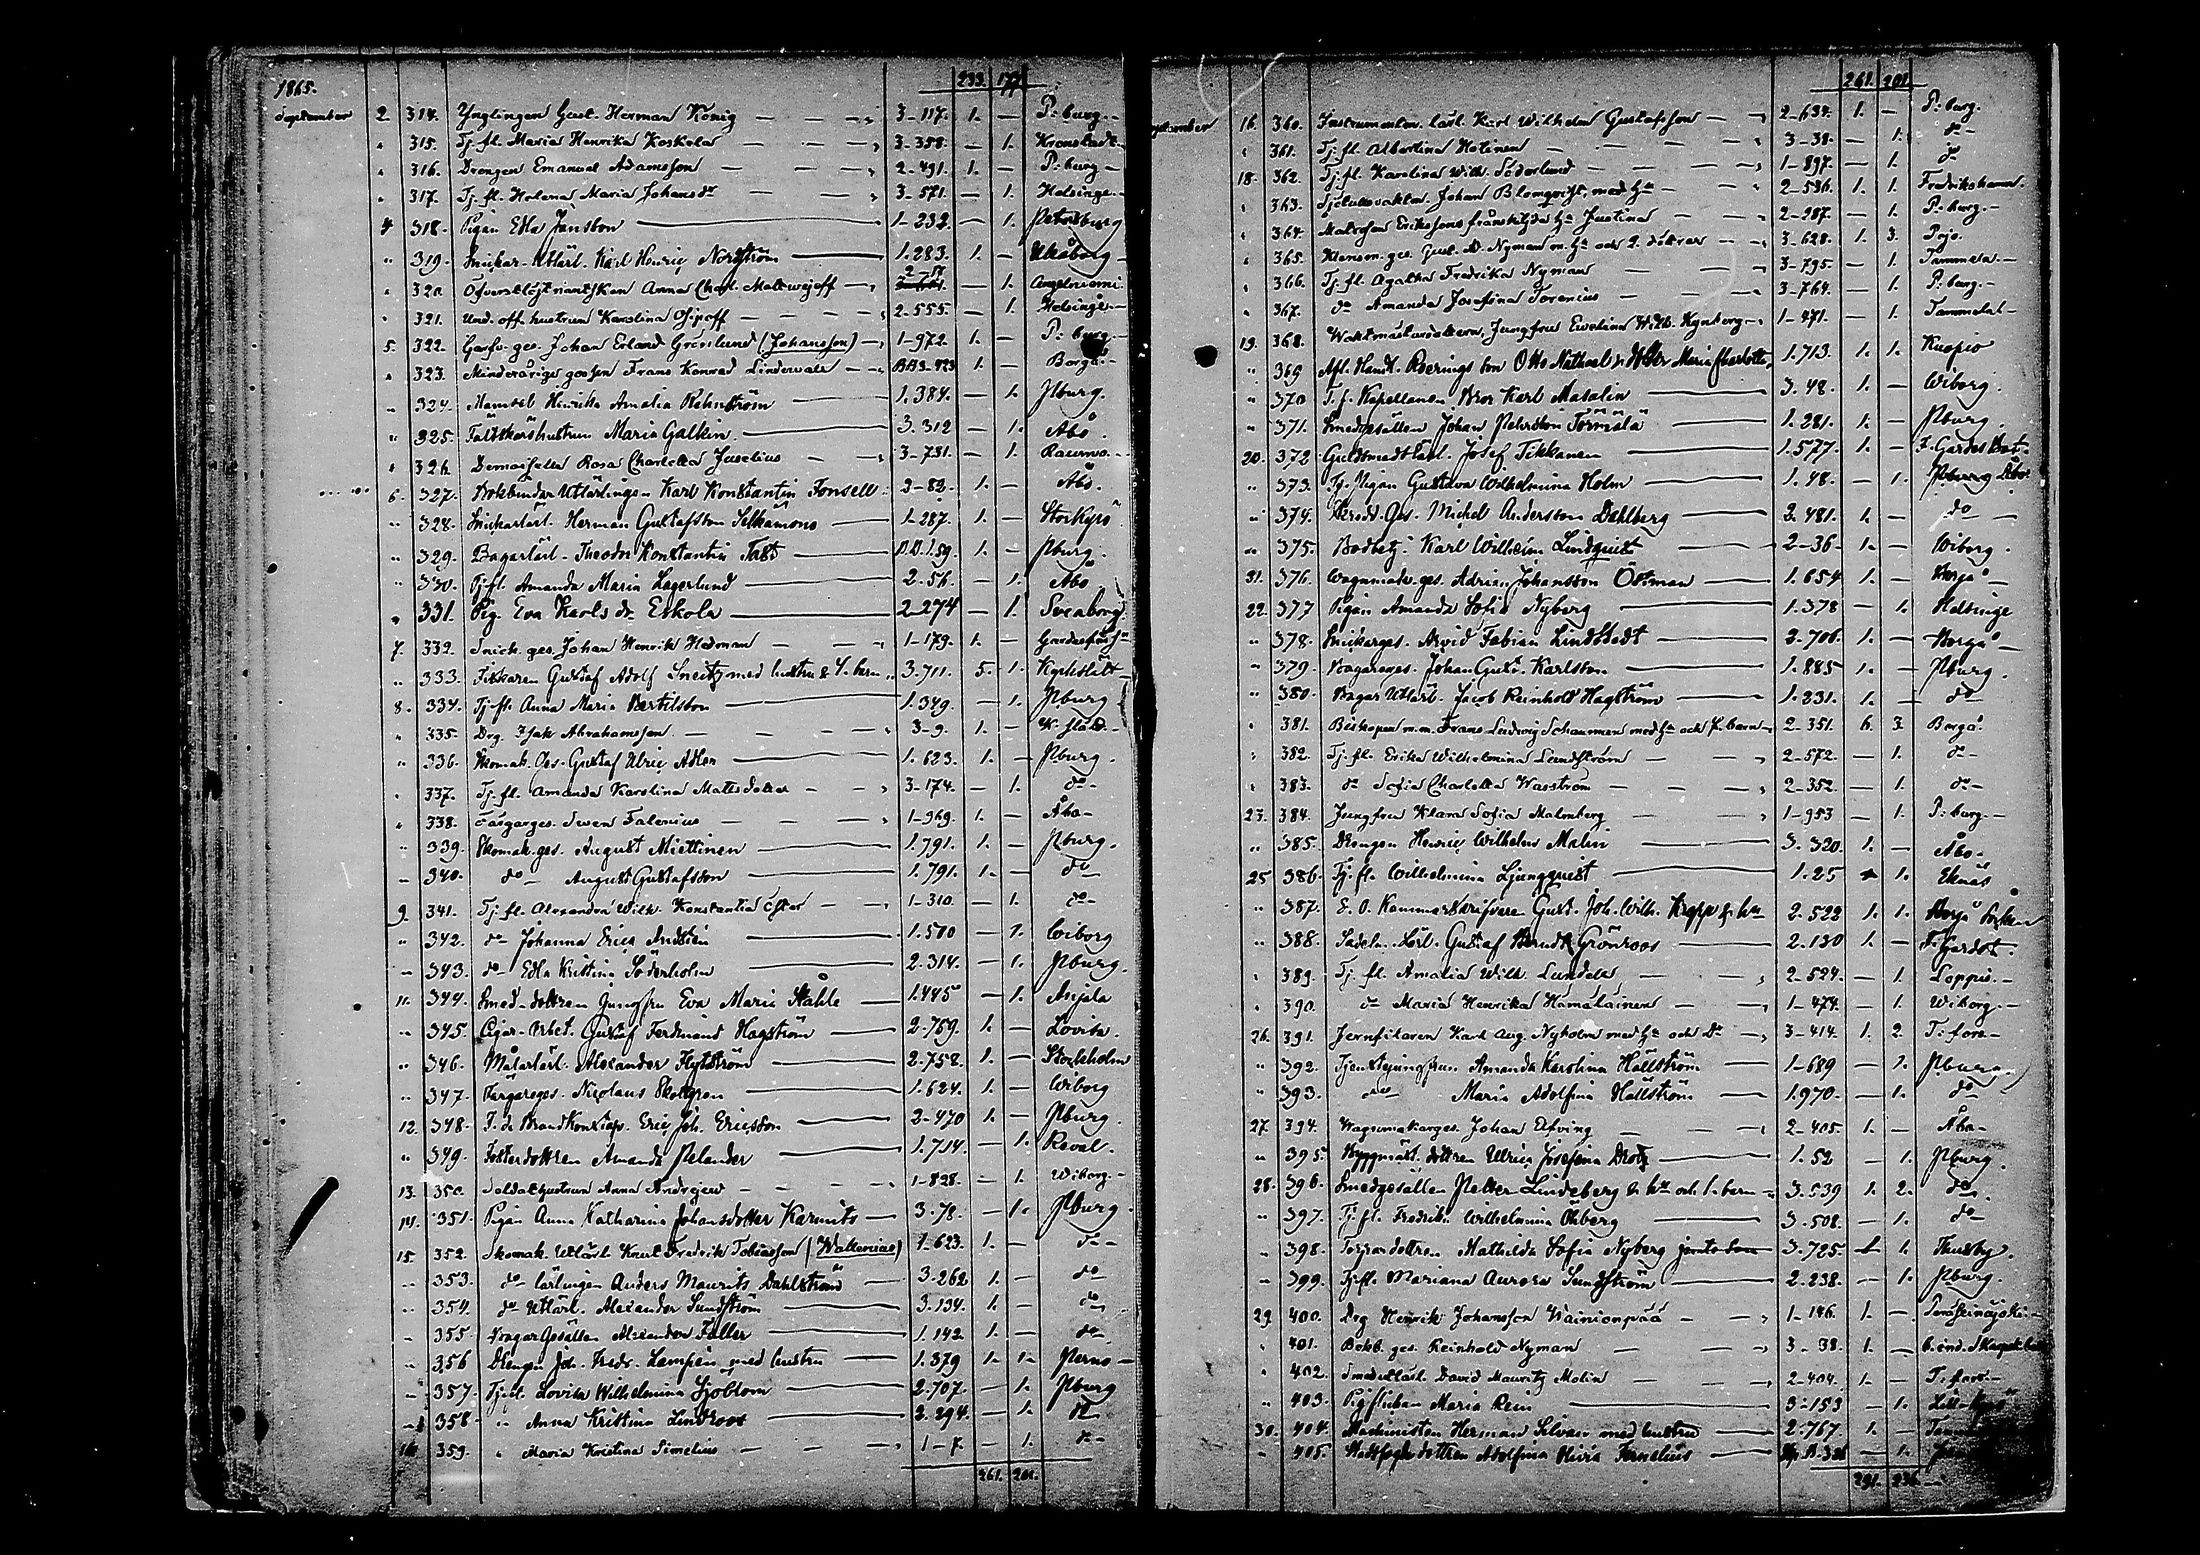 1865. 233. 177.
September 2 314. Ynglingen Gust. Herman König 3-117. 1. — P:burg.
" 315. Tj. fl. Maria Henrika Koskela 3-358. — 1. Kronstadt
" 316. Drengen Emanuel Adamsson 2-491. 1. — P:burg
" 317. Tj. fl. Helena Maria Johansdr 3-571. — 1. Helsinge
4 318. Pigan Edla Jansson 1-232. — 1. Petersburg
" 319. Snickar-Utlärl. Karl Henric Norström 1.283. 1. — Uleåborg
" 320. Öfverstlöjtnantskan Anna Charl. Matwejeff — 1. Angelniemi
" 321. Und. off. hustrun Karolina Osipoff 2-555. — 1. Helsinge
5. 322. Garfv. ges. Johan Erland Grönlund (Johansson) 1-972. 1. — P:burg
" 323. Minderårige gossen Frans Konrad 1. — Borgå
" 324. Mamsell Hinrika Amalia Rehnström 1.384. — 1. Pburg.
" 325. Fältskärshustrun Maria Galkin 3.312 — 1. Åbo.
" 326. Demoiselle Rosa Charlotta Juselius 3-731. — 1. Raumo.
6. 327. Bokbindar Utlärlingen Karl Konstantin Fonsell 3-82. 1. — Åbo.
" 328. Snickarlärl. Herman Gustafsson 1-287. 1. — Storkyro
" 329. Bagarlärl. Theodor Konstantin Tast 1.59. 1. — Pburg.
" 330. Tj. fl. Amanda Maria Lagerlund 2-56. — 1. Åbo
" 331. Pig. Eva Karlsdr Eskola 2-274 — 1. Sveaborg
7. 332. Snick. ges. Johan Henrik Hedman 1-179. 1. —
" 333. Fiskaren Gustaf Adolf med hustru & 4 barn 3.711. 5. 1. Kyrkslätt
8. 334. Tj. fl. Anna Maria Bertilsson 1.349. — 1. Pburg
" 335. Drg. Isak Abrahamsson 3-9. 1. —
" 336. Skomak. Ges. Gustaf Ulric Adler 1.623. 1. — Pburg.
" 337. Tj. fl. Amanda Karolina Mattsdotter 3-174. — 1. do
" 338. Färgarges. Swen Falenius 1-369. 1. — Åbo
" 339. Skomak. ges. August Miettinen 1.791. 1. — Pburg.
" 340. do August Gustafsson 1.791. 1. — do
9. 341. Tj. fl. Alexandra Wilh. Konstantia Öster 1-310. — 1. do
" 342. do Johanna Erica 1.510 — 1. Wiborg
" 343. do Edla Kristina Söderholm 2.314. — 1. Pburg.
11. 344. Smed-dottren Jungfru Eva Maria Ståhle 1.445 — 1. Anjala
" 345. Cigar-Arbet. Gustaf Ferdinand Hagström 2-769. 1. — Lovisa.
" 346. Målarlärl. Alexander Flytström 2-758. 1. — Stockholm
" 347. Färgareges. Nicolaus Skottgren 1.624. 1. — Wiborg
12. 348. T. d. Brandkonstap. Eric Joh. Ericsson 2-470 1. — Pburg.
" 349. Fosterdottren Amanda Pelander 1.714. — 1. Reval.
13. 350. Soldathustrun Anna Andrejew 1-828. — 1. Wiborg.
14. 351. Pigan Anna Katharina Johansdotter Karmits 3.78. — 1. Pburg.
15. 352. Skomak. Utlärl. Knut Fredrik Tobiasson (Wallenius) 1.623. 1. — do
" 353. do lärlingen Anders Maurits Dahlström 3.262 1. — do
" 354. do Utlärl. Alexander Sundström 3.134. 1. — do
" 355. Bagar Gesällen Alexander Faller 1.142 1. — do
" 356 Drengen Joh. Fredr. Lampén med hustru 1.379 1. 1. Perno
" 357. Tj. fl. Lovisa Wilhelmina Sjöblom 2.707. — 1. Pburg
" 358. " Anna Kristina Lindroos 2.294. — 1. do
16. 359. " Maria Kristina Simelius 1-7. — 1. do
261. 201.
261. 201.
September 16. 360. Instrumentm. lärl. Karl Wilhelm Gustafsson 2-634. 1. — P:burg.
" 361. Tj. fl. Albertina Hotinen 3-38. — 1. do
18. 362. Tj. fl. Karolina Wilh. Söderlund 1-897. — 1. do
" 363. Johan Blomqvist, med hu 2-536. 1. 1. Fredrikshamn.
" 364. Matrosen Erikssons frånskilda hu Justina 2-287. — 1. P:burg.
" 365. Klensm. ges. Gust. Ad. Nyman m. hu och 2 döttrar 3-628. 1. 3. Pojo.
" 366. Tj. fl. Agatha Fredrika Nyman 3-795. — 1. Tammela
" 367. do Amanda Josefina Torenius 3-764. — 1. P:burg.
19. 368. Waktmästaredottern, Jungfru Ewelina Wilh. Nynberg 1-471. — 1. Tammela
" 369 Afl. Handl. Roerings son Otto Nathanael & dotter Maria Charlotta 1.713. 1. 1. Kuopio
" 370 T. f. Kapellanen Bror Karl Masalin 3.48. 1. — Wiborg.
" 371. Smedgesällen Johan Petersson Törmälä 1.281. 1. — Pburg.
20. 372 Guldsmedslärl. Josef Tikkanen 1.577. 1. — F. Gardes Bat.
" 373. Tj. Pigan Gustava Wilhelmina Holm 1.48. — 1. Pburg
" 374. Skrädd. Ges. Michel Andersson Dahlberg 2.481. 1. — do
" 375. Bodbetj. Karl Wilhelm Lindquist 2-36. 1. — Wiborg.
21. 376. Wagnmak. ges. Adrian Johansson Östman 1.654 1. — Borgå
22. 377 Pigan Amanda Sofia Nyberg 1.378 — 1. Helsinge
" 378. Snickarges. Arvid Fabian Lindstedt 2-706. 1. — Borgå
" 379. Bagareges. Johan Gust. Karlsson 1.885 1. — Pburg.
" 380. Bagar Utlärl. Jacob Reinhold Hagström 1.231. 1. — do
" 381. Biskopen m.m. Frans Ludwig Schauman med hu och 7 barn 2-351. 6. 3. Borgå.
" 382. Tj. fl. Erika Wilhelmina Sandström 2-572. — 1. do
" 383. do Sofia Charlotta Wasström 2-352. — 1. do
23. 384. Jungfru Klara Sofia Malmberg 1-953 — 1. P:burg.
" 385. Drengen Henric Wilhelm Malin 3.320. 1. — Åbo
25 386. Tj. fl. Wilhelmina Ljungquist 1.25 — 1. Eknäs
" 387. E. O. Kammarskrifvaren Gust. Joh. Wilh. Kropp & hu 2.522 1. 1. Borgå Socken
" 388. Sadelm. Lärl. Gustaf Berndt Grönroos 2.130 1. —
" 389. Tj. fl. Amalia Wilh. Lundell 2-524. — 1. Loppis.
" 390. do Maria Henrika Hämäläinen 1-474. — 1. Wiborg.
26. 391. Jernfilaren Karl Aug. Nyholm med hu och Dr 3-414. 1. 2. T:fors
" 392. Tjenstejungfrun Amanda Karolina Hällström 1-689 — 1. Pburg
" 393. do Maria Adolfina Hällström 1.970. — 1. do
27. 394. Wagnmakarges. Johan Elfving 2-405. 1. — Åbo
" 395. Byggmäst. dottren Ulrica Josefina 1.52 — 1. Pburg.
28. 396. Smedgesällen Petter Lindeberg & hu och 1. barn 3.539 1. 2. do
" 397. Tj. fl. Fredrika Wilhelmina Öhberg 3.508. — 1. do
" 398. Torpardottren Mathilda Sofia Nyberg jemte son 3.725. 1. Thusby.
" 399. Tj. fl. Mariana Aurora Sundström 2.238. — 1. Pburg.
29. 400. Drg Henrik Johansson Wainionpää 1-146. 1. — Peräseinäjoki
" 401. Bokb. ges. Reinhold Nyman 3-38. 1. —
" 402. Smedsutlärl. David Mauritz Molin 2-404. 1. — T:fors.
" 403. Pigflickan Maria Rem 3-153 — 1.
30. 404. Machinisten Herman Silvan med hustru 2.767. 1. —
" 405. dottren Adolfina Maria Fernelius — 1.
291. 236.